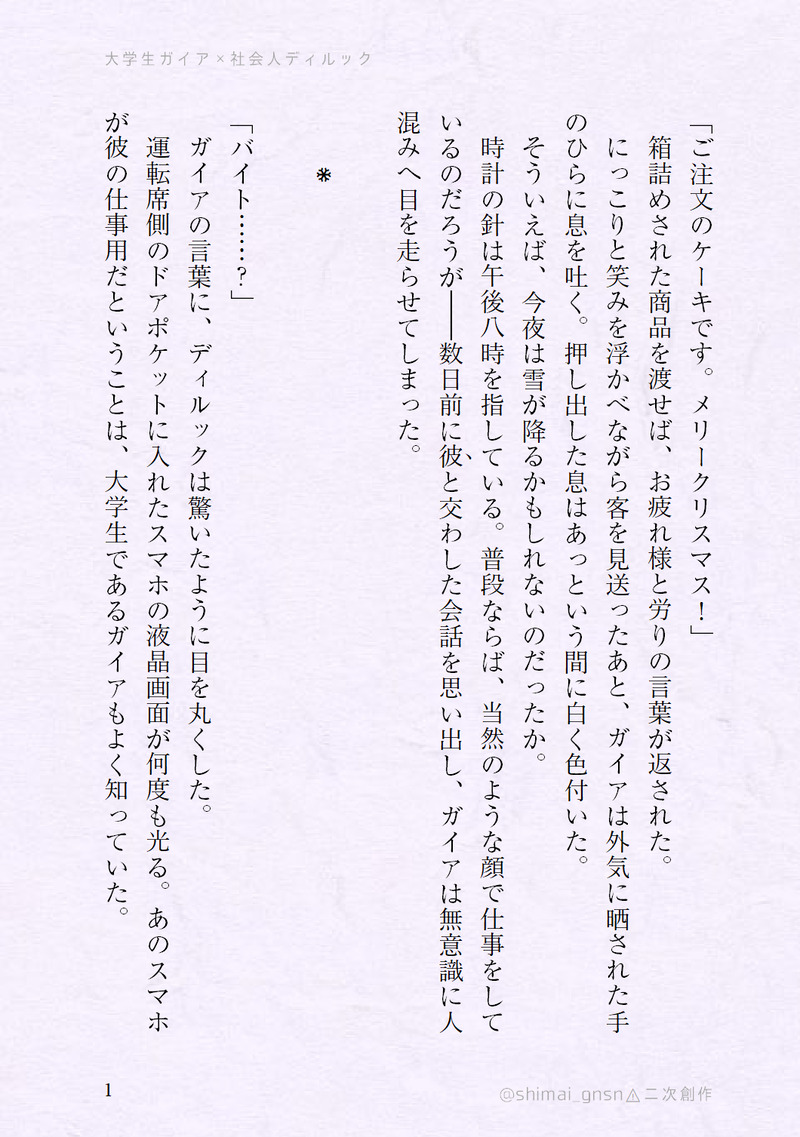 大学生ガイア×社会人ディルック
「ご注文のケーキです。メリークリスマス！」
箱詰めされた商品を渡せば、お疲れ様と労りの言葉が返された。
にっこりと笑みを浮かべながら客を見送ったあと、ガイアは外気に晒された手
のひらに息を吐く。押し出した息はあっという間に白く色付いた。
そういえば、今夜は雪が降るかもしれないのだったか。
時計の針は午後八時を指している。普段ならば、当然のような顔で仕事をして
いるのだろうが――数日前に彼と交わした会話を思い出し、ガイアは無意識に人
混みへ目を走らせてしまった。
＊
「バイト……？」
ガイアの言葉に、ディルックは驚いたように目を丸くした。
運転席側のドアポケットに入れたスマホの液晶画面が何度も光る。あのスマホ
が彼の仕事用だということは、大学生であるガイアもよく知っていた。
1
@shimai_gnsn⚠二次創作